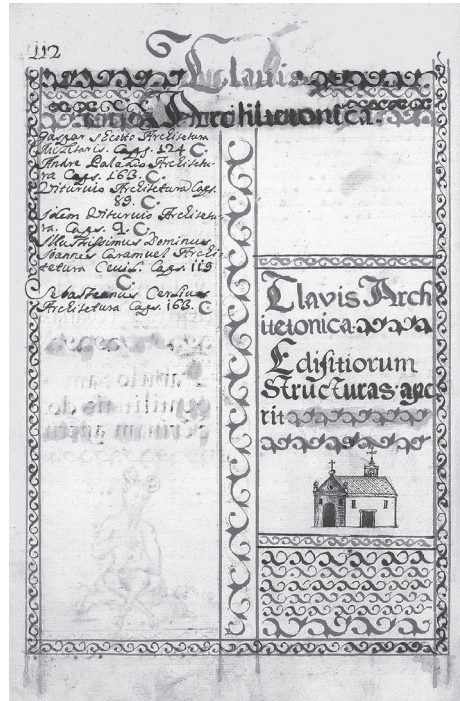 112
Clavis
Architetonica.
Gaspar scoto Architetura
Militaris. Cags. 124 C.
Andre Paladio Architetu-
ra Cags. 163. C.
Vitruvio Architetura Cags.
89. C.
Idem Vitruvio Architetu-
ra. Cags. 9. C.
Illustrissimus Dominus
Joannes Caramuel Archi-
tetura Ceuil. Cags. 119
C
Sebasteanus Cerlius
Architetura Cags. 163. C
Clavis Arch
itetonica.
Edifitiorum
Structuras ape
rit